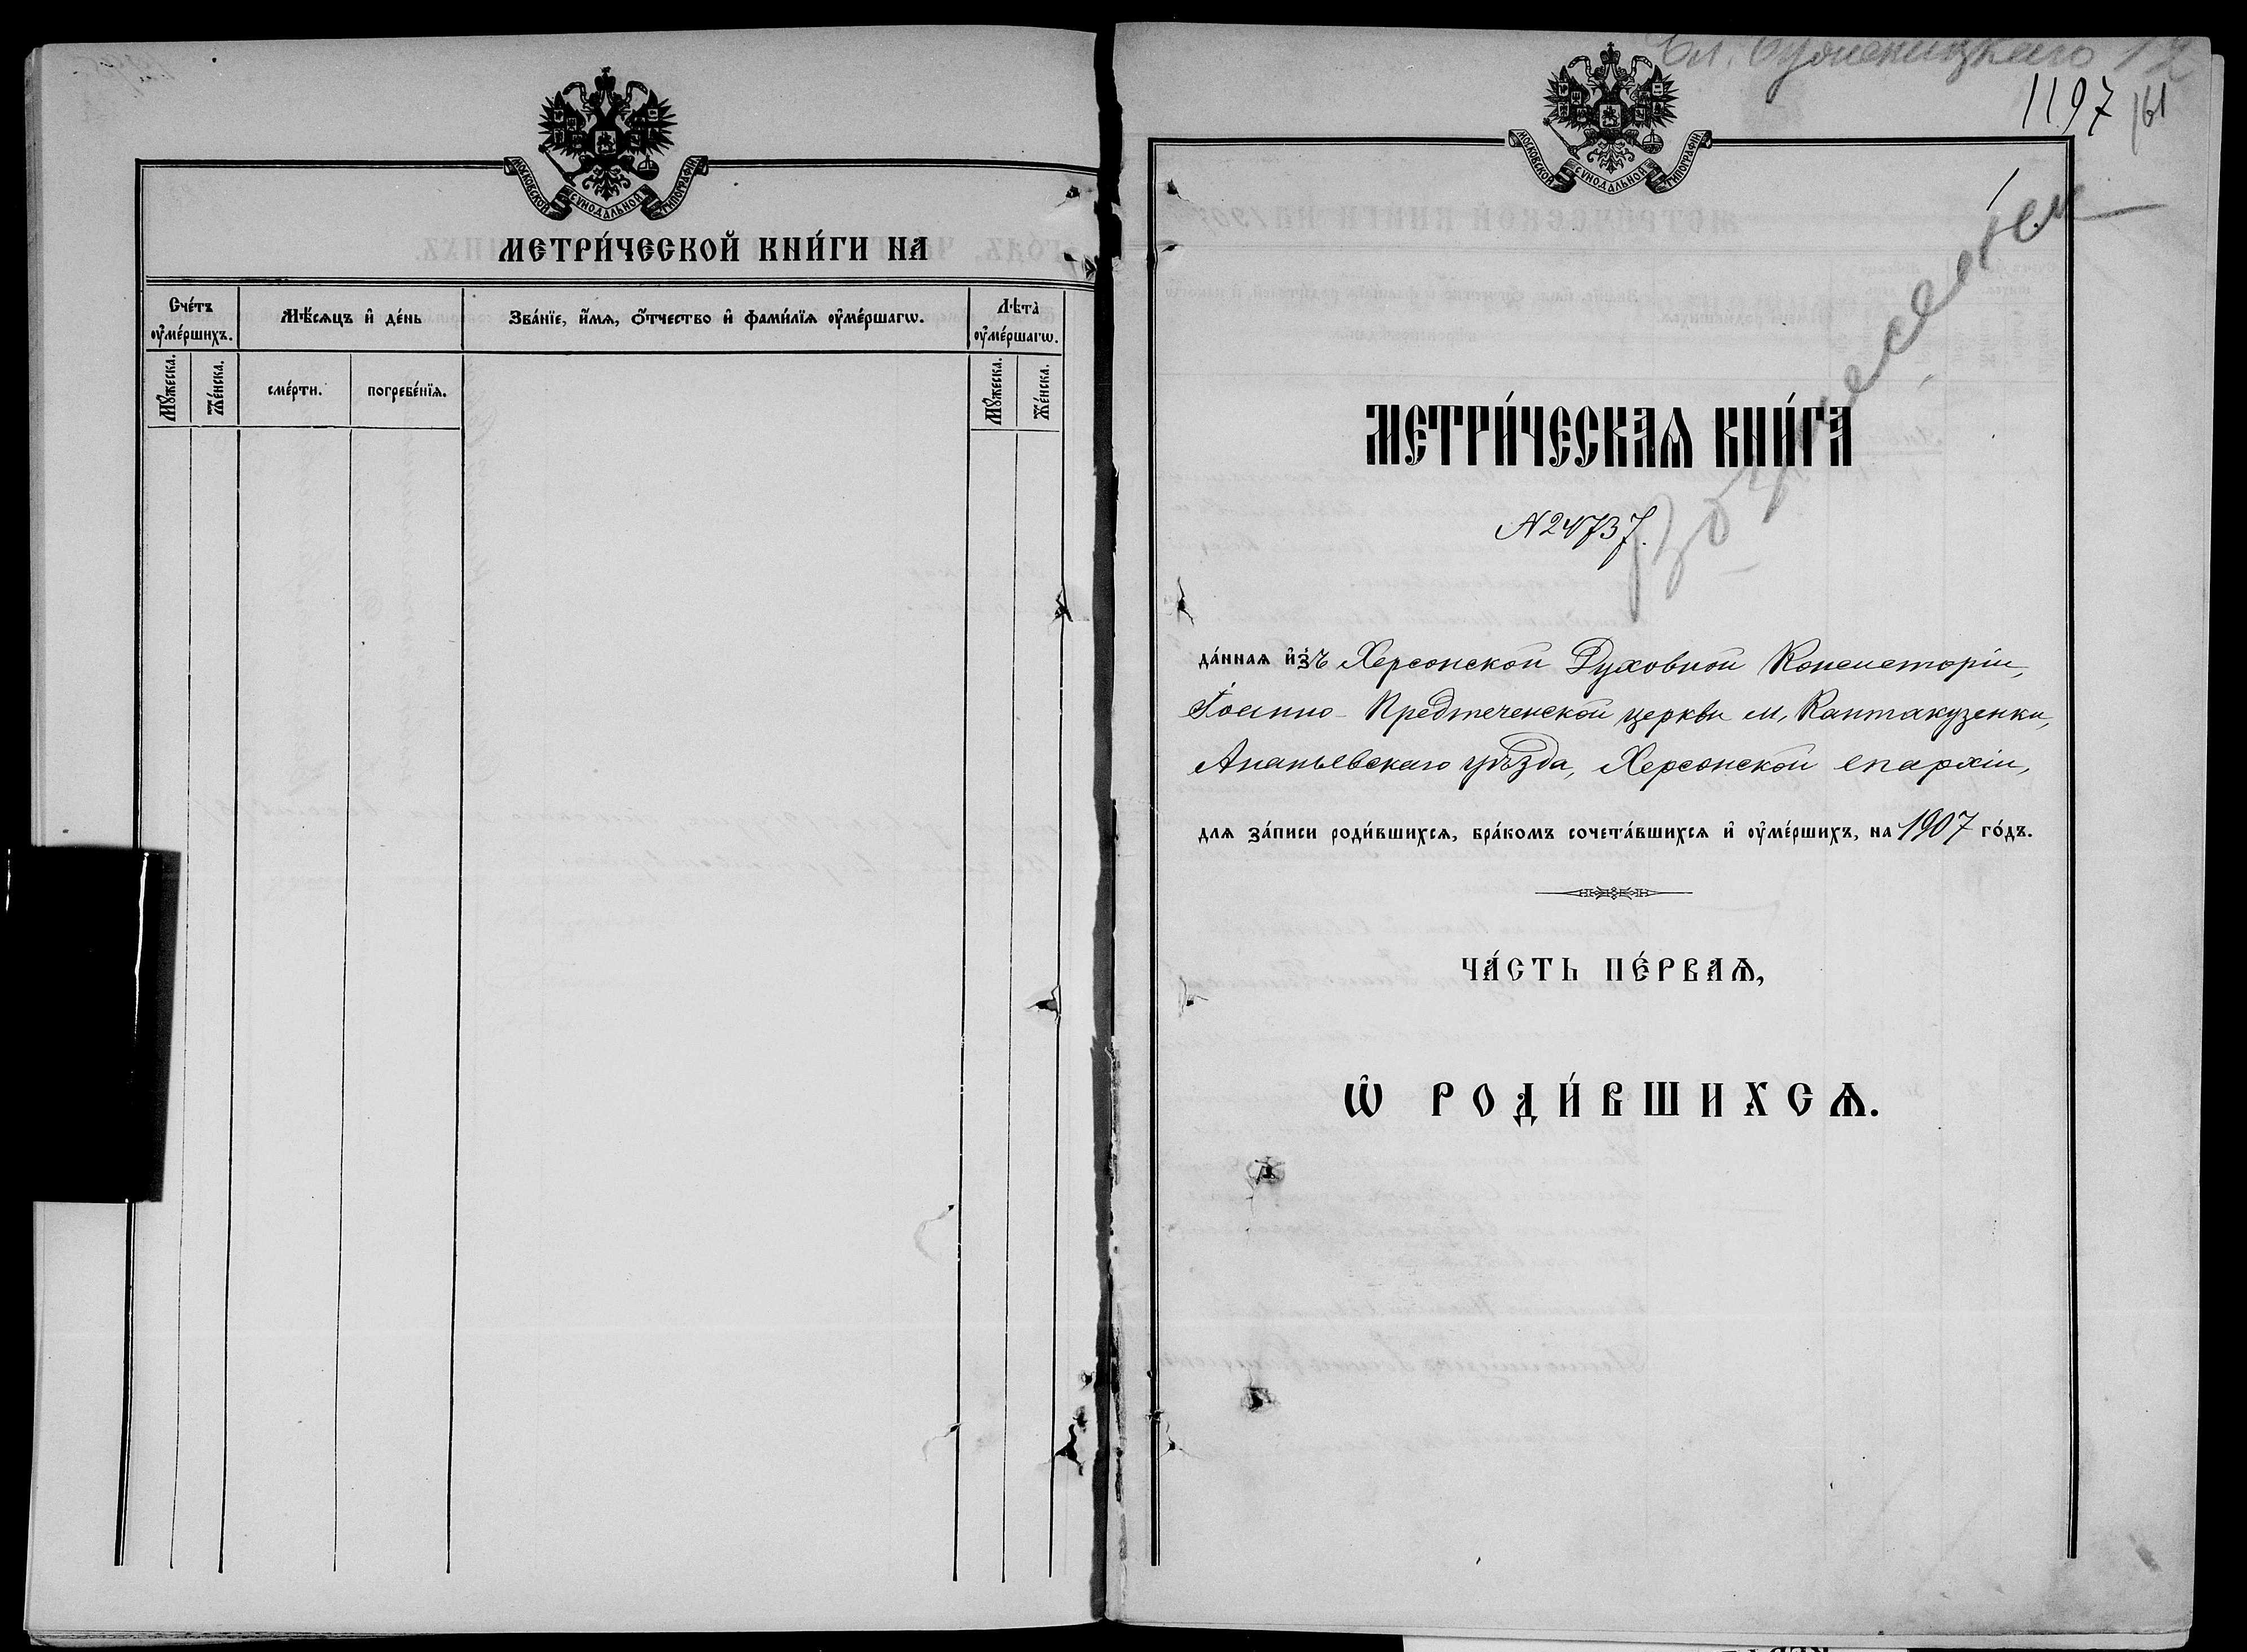 МОСКОВСКОЙ СѴНОДАЛЬНОЙ ТИПОГРАФІИ
МЕТРИ́ЧЕСКОЙ КНИ́ГИ НА
Сче́тъ оу҆ме́ршихъ.
Мѣ́сяцъ и҆ де́нь
Зва́нїе, и҆́мѧ, ѻ҆́тчество и҆ фами́лїѧ оу҆ме́ршагѡ.
Лѣта̀ оу҆ме́ршагѡ.
Мꙋ́жеска.
Же́нска.
сме́рти.
погребе́нїѧ.
Мꙋ́жеска.
Же́нска.
1197
161
МОСКОВСКОЙ СѴНОДАЛЬНОЙ ТИПОГРАФІИ
МЕТРИ́ЧЕСКАѦ КНИ́ГА
N 24737.
да́ннаѧ и҆зъ Херсонской Духовной Консисторіи,
Іоанно-Предтеченской церкви м. Кантакузенки,
Ананьевскаго уѣзда, Херсонской епархіи,
для за́писи роди́вшихсѧ, бра́комъ сочета́вшихсѧ и҆ оу҆ме́ршихъ, на 1907 го́дъ.
ЧА́СТЬ ПЕ́РВАѦ,
Ѡ҆ РОДИ́ВШИХСѦ.